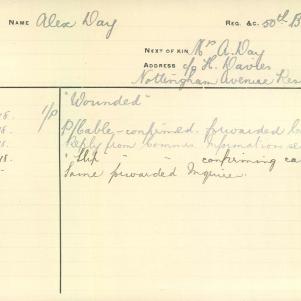 NAME Alex Day REG. &C. 50th B
NEXT OF KIN Mrs A. Day
ADDRESS c/o H. Davies
Nottingham Avenue Res
"Wounded"
P/Cable - confirmed. forwarded
Reply from Commis. Information
18. " Slip " " confirming ca
Same forwarded Inquirer.